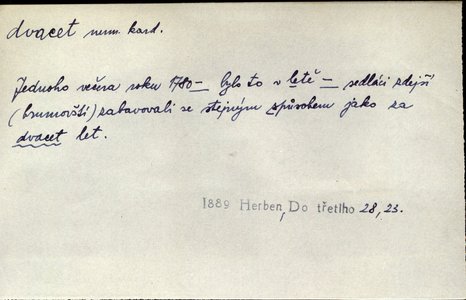 dvacet num. kard.
Jednoho večera roku 1780 — bylo to v letě — sedláci zdejší
(brumovští) zabavovali se stejným spůsobem jako za
dvacet let.
1889 Herben, Do třetího 28, 23.